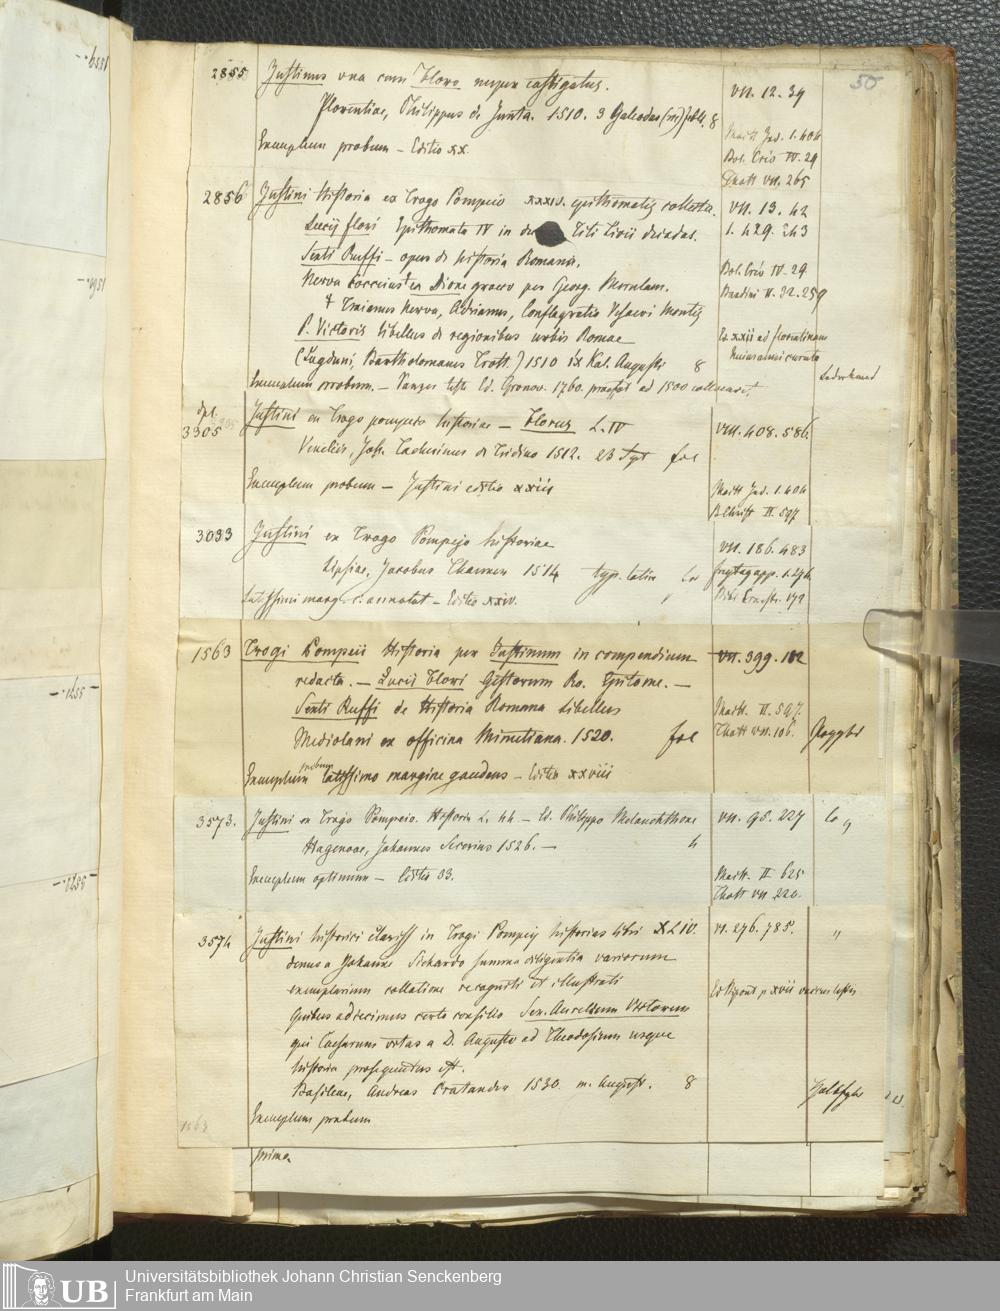 50
2855 Justinus una cum Floro nuper castigatus. VII. 12. 34
Florentiae, Philippus de Junta. 1510. 3 8
Mait Ind. 1. 404
Exemplum probum – Editio XX. Bol. Cris IV. 29
Thott VII. 265
2856 Justini Historia ex Trogo Pompeio XXXIV. epithomatis collecta. VII. 13. 42
Lucij flori Epithomata IV in Titi Livii decadas. 1. 429. 243
Sexti Ruffi – opus de historia Romana. Bol. Cris IV. 29
Nerva Cocceius ex Dione graeco per Georg. Merulam. Bandini II. 32. 259
& Traianus Nerva, Adrianus, Conflagratio Vesaevi Montis
P. Victoris libellus de regionibus urbis Romae Ed. XXII ad florentinam
(Lugduni, Bartholomaeus Trott.) 1510 IX Kal. Augusti 8
Exemplum probum. – Panzer teste Ed. Gronov. 1760. praefat ad 1500 Lederband
dpl.
3305 Justini ex Trogo pompeio historiae – Florus L. IV VIII. 408. 586.
Venetiis, Joh. Tacuinus de Tridino 1512. 23 fol
Exemplum probum – Justini editio XXIII Maitt Ind. 1. 404
II. 597
3033 Justini ex Trogo Pompejo historiae VII. 186. 483
Lipsiae, Jacobus Thanner 1514 typ. latin freytag app. 1. 276.
Latissimi marg. c. annotat – Editio XXIV. 179
1563 Trogi Pompeii Historia per Justinum in compendium VII. 399. 182
redacta. – Lucii Flori Gestorum Ro. Epitome. –
Sexti Ruffi de Historia Romana Libellus Maitt. II. 597.
Mediolani ex officina Minutiana. 1520. fol Thott VII. 106. Pappbd
Exemplum probum latissimo margine gaudens – Editio XXVIII
3573. Justini ex Trogo Pompeio. Historia L. 44 – Ed. Philippo Melanchthone VII. 95. 227
Hagenoae, Johannes Secerius 1526. – 4
Exemplum optimum – Editio 33. Maitt. II 625
Thott VII 220.
3574 Justini historici clariss in Trogi Pompeij historias libri XLIV. VI. 276. 785. "
denuo a Johanne Sichardo summa diligentia variorum
exemplarium collatione recogniti et illustrati Ed Bipont p XVII
Quibus adiecimus certo consilio Sex. Aurelium Victorem
qui Caesarum vitas a D. Augusto ad Theodosium usque
historia prosequutus est.
Basileae, Andreas Cratander 1530 m. August. 8
Exemplum probum
1563
prima
Universitätsbibliothek Johann Christian Senckenberg
Frankfurt am Main
UB